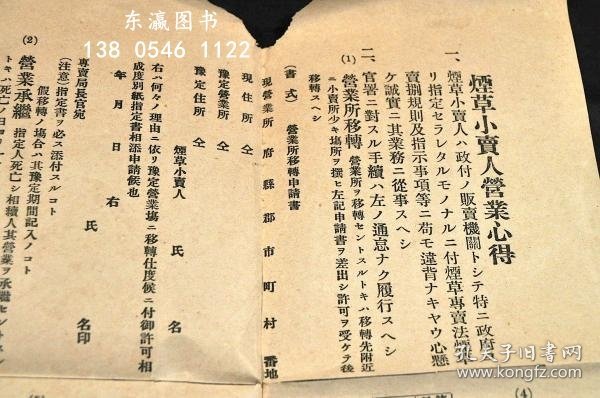 东瀛图书
138 0546 1122
煙草小賣人營業心得
一、煙草小賣人ハ政付ノ販賣機關トシテ特ニ政府
リ指定セラレタルモノナルニ付煙草專賣法煙
賣捌規則及指示事項等ニ苟モ違背ナキヤウ心懸
ケ誠實ニ其業務ニ從事スヘシ
二、官署ニ對スル手續ハ左ノ通息ナク履行スヘシ
(1) 營業所移轉 營業所ヲ移轉セントスルトキハ移轉先附近
ニ小賣所少キ場所ヲ撰ヒ左記申請書ヲ差出シ許可ヲ受ケテ後
移轉スヘシ
(書式) 營業所移轉申請書
現營業所 府縣郡市町村 番地
現住所 仝
豫定營業所 仝
豫定住所 仝
煙草小賣人 氏名
右ハ何々ノ理由ニ依リ豫定營業場ニ移轉仕度候ニ付御許可相
成度別紙指定書相添申請候也
年月日 右 氏名印
專賣局長官宛
(注意) 指定書ヲ必ス添付スルコト
假移轉ノ場合ハ其豫定期間記入ノコト
(2) 營業承繼 指定人死亡シ相續人其營業ヲ承繼セントスル
トキハ死亡ノ日ヨリ
(4)
孔夫子旧书网
www.kongfz.com